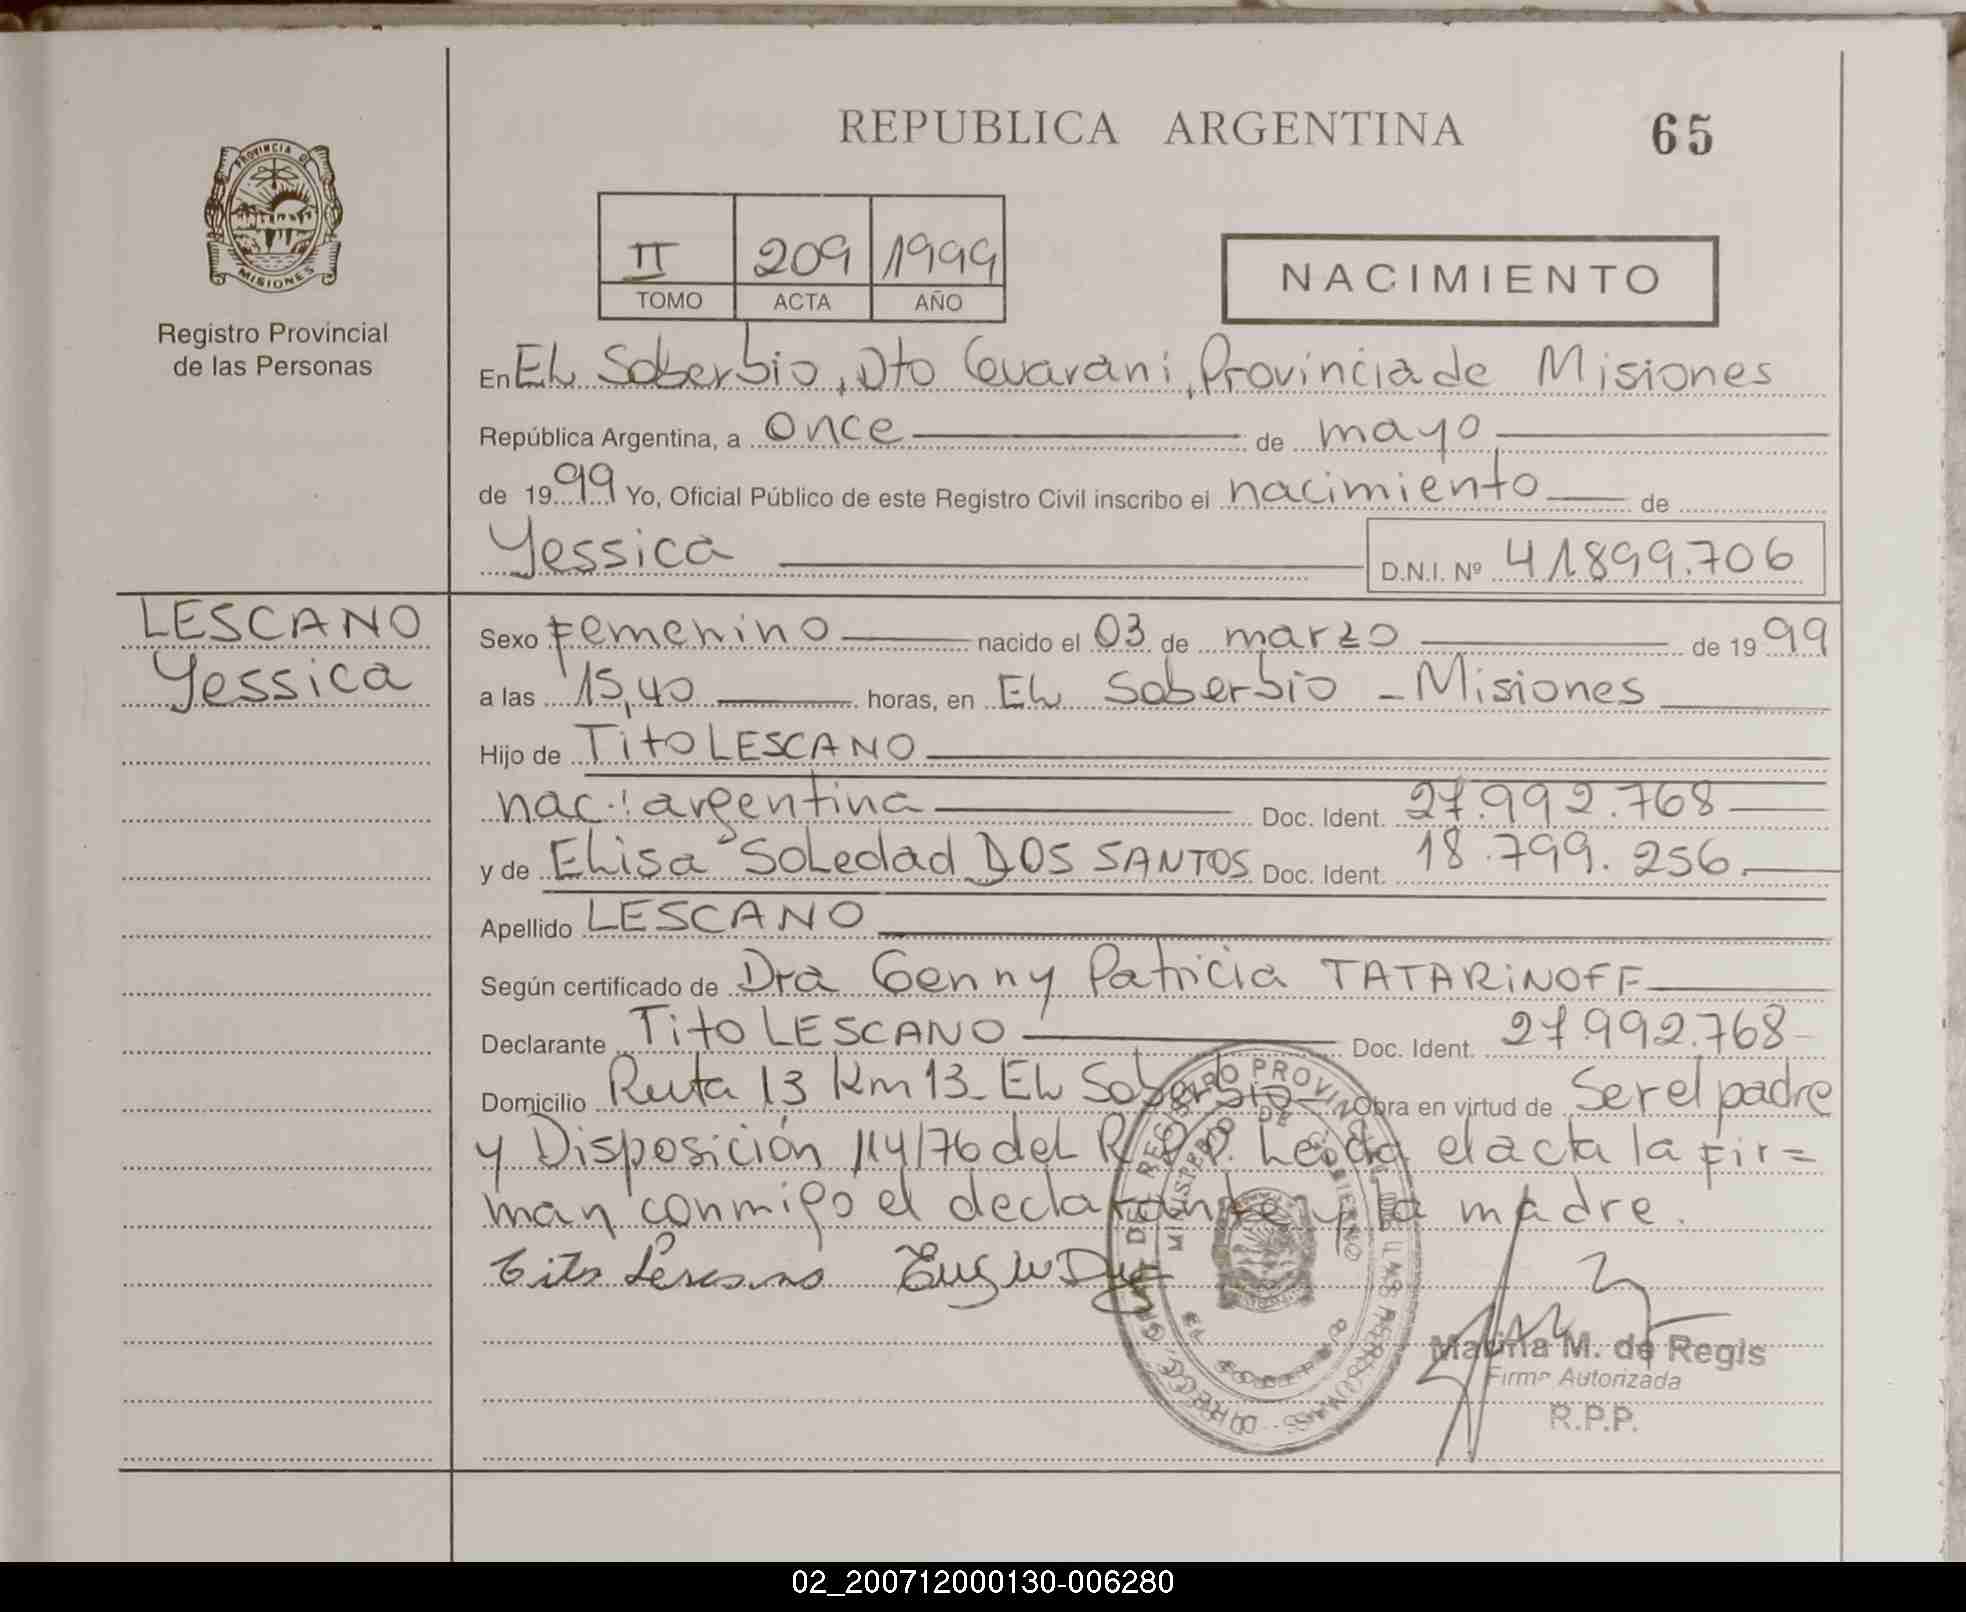 REPUBLICA ARGENTINA
65
PROVINCIA DE
MISIONES
Registro Provincial
de las Personas
II 209 1999
TOMO ACTA AÑO
NACIMIENTO
En El Soberbio, Dto Guaraní, Provincia de Misiones
República Argentina, a once de mayo
de 1999 Yo, Oficial Público de este Registro Civil inscribo el nacimiento de
Yessica D.N.I. Nº 41899.706
LESCANO
Yessica
Sexo Femenino nacido el 03 de marzo de 1999
a las 15,40 horas, en El Soberbio - Misiones
Hijo de Tito LESCANO
nac.: argentina Doc. Ident. 27.992.768
y de Elisa Soledad DOS SANTOS Doc. Ident. 18.799.256
Apellido LESCANO
Según certificado de Dra Genny Patricia TATARINOFF
Declarante Tito LESCANO Doc. Ident. 27.992.768
Domicilio Ruta 13 Km 13 - El Soberbio - Obra en virtud de Ser el padre
y Disposición 114/76 del R.P.P. Leída el acta la fir=
man conmigo el declarante y la madre.
Tito Lescano
MINISTERIO DE GOBIERNO
Marina M. de Regis
Firma Autorizada
R.P.P.
02_200712000130-006280